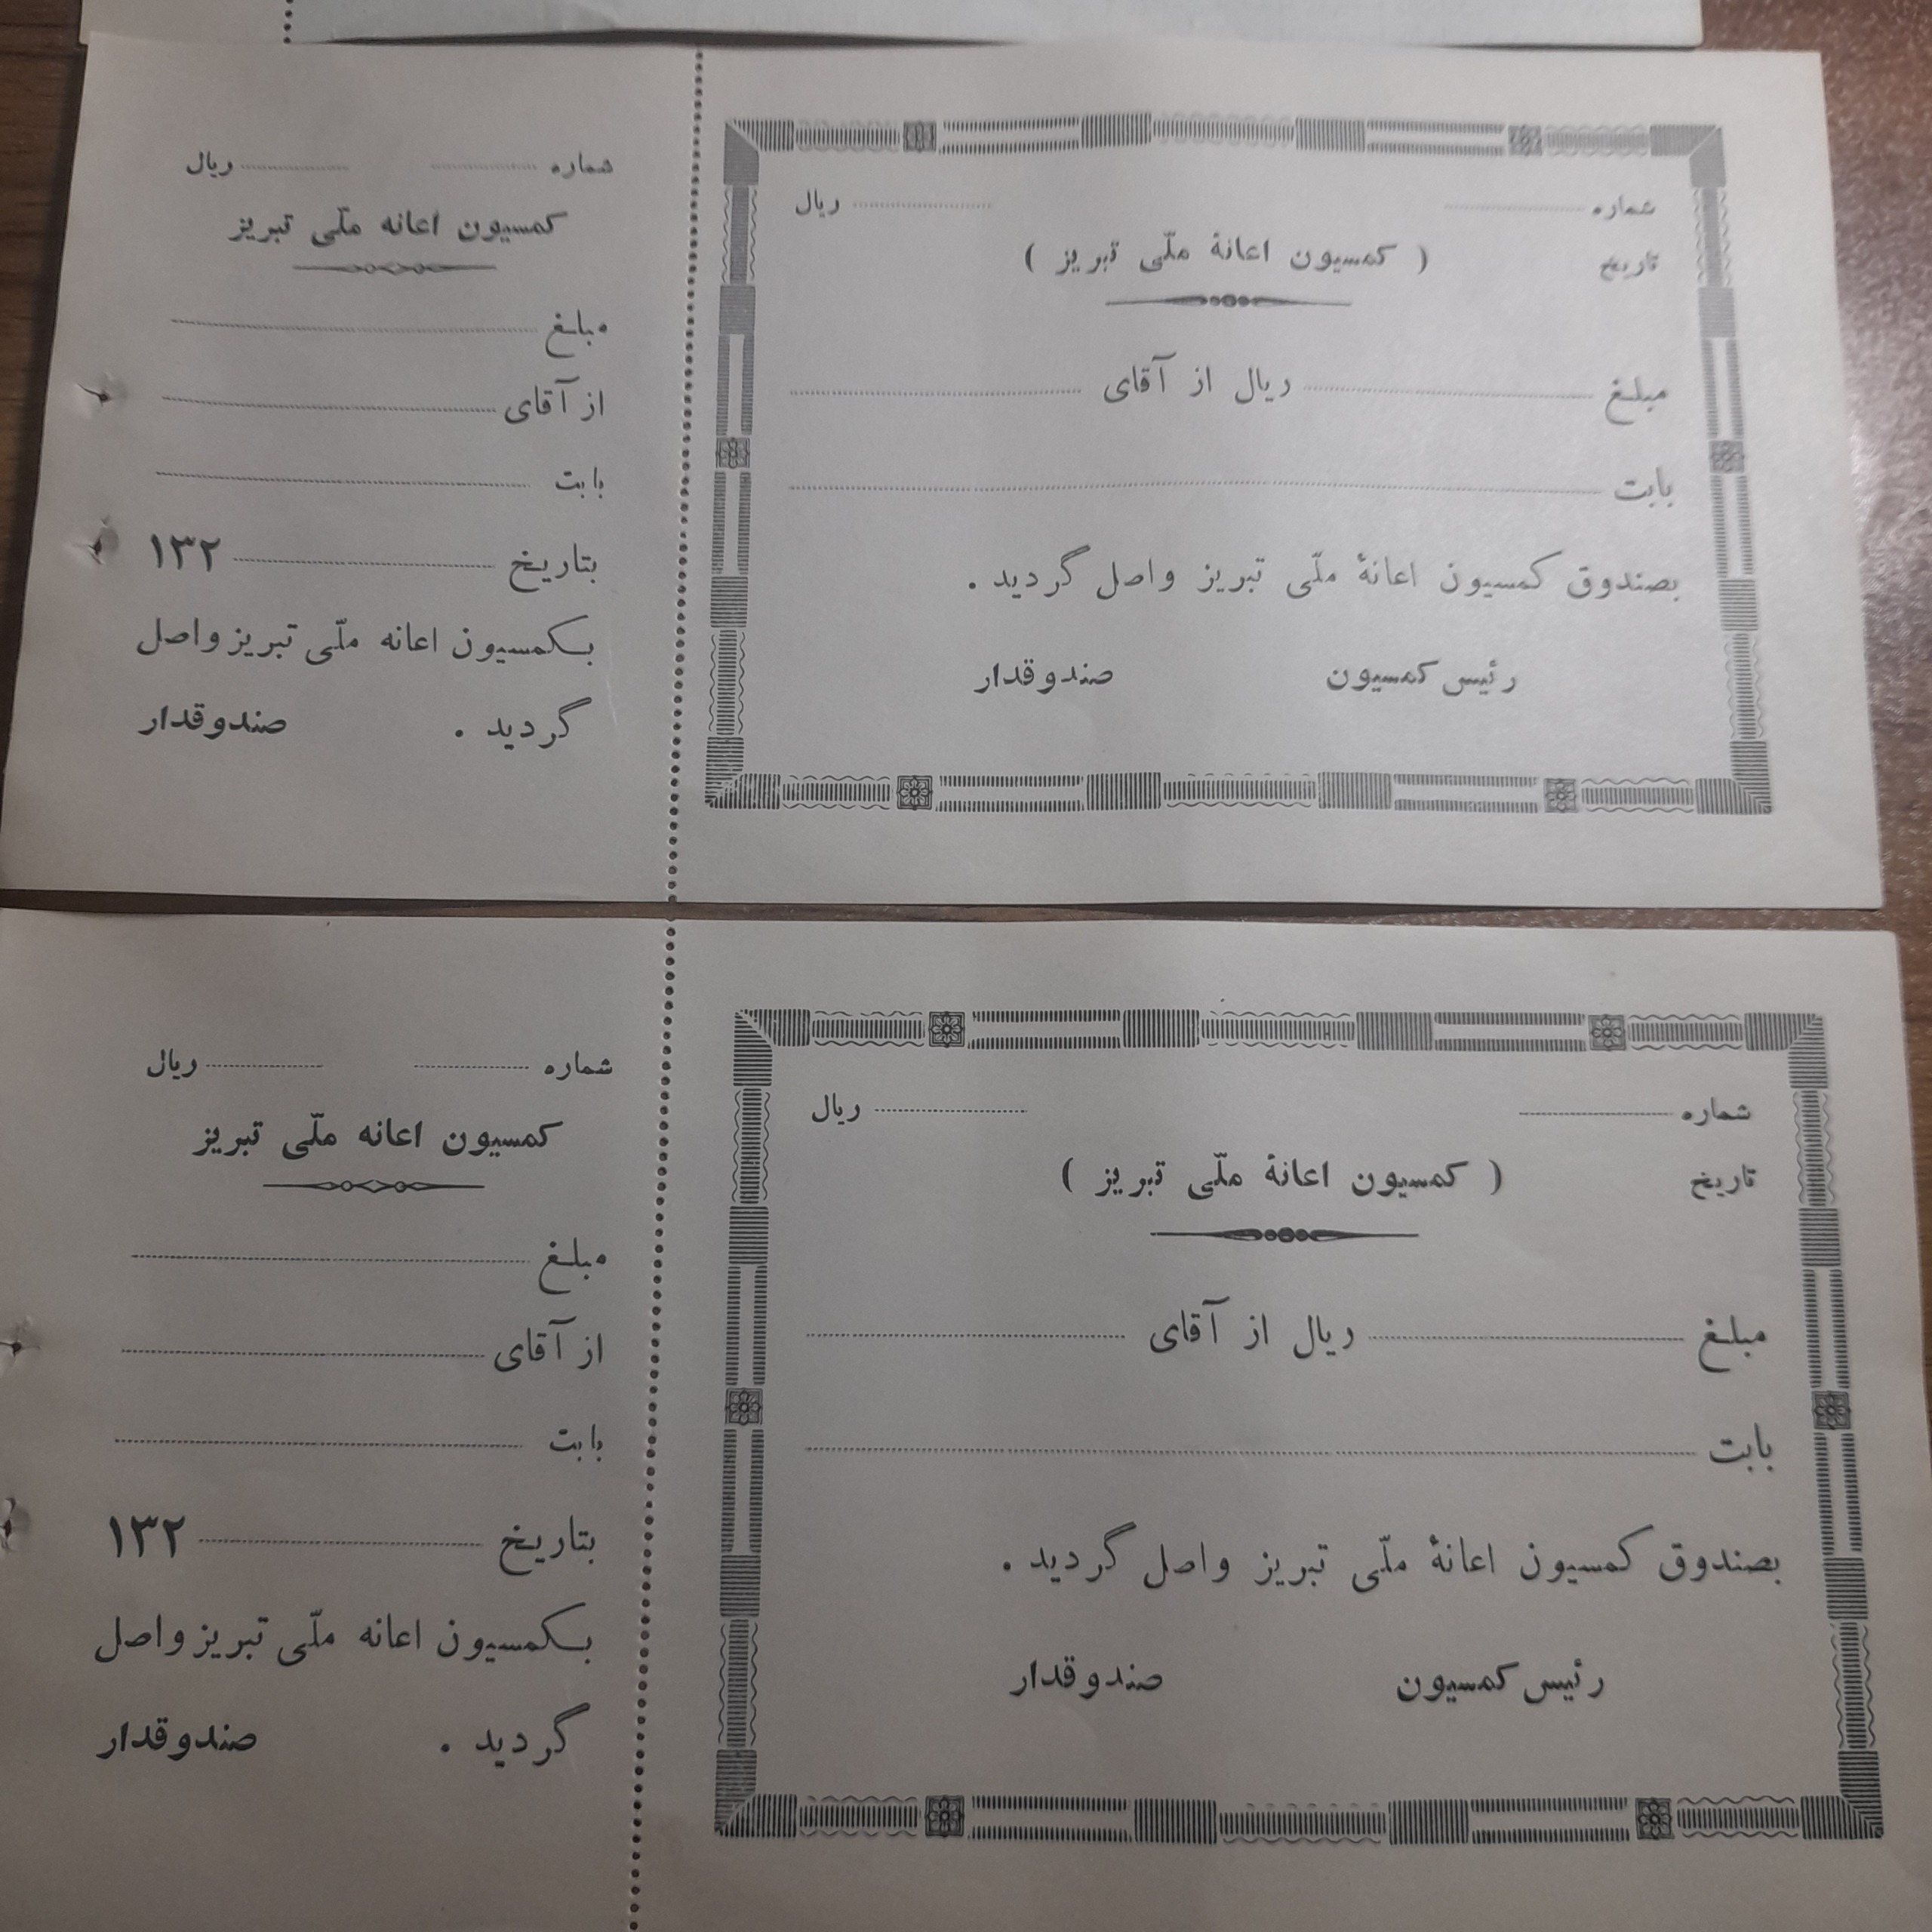 شماره ........ ........ ریال
تاریخ
( کمسیون اعانهٔ ملّی تبریز )
مبلغ ........ ریال از آقای ........
بابت ........
بصندوق کمسیون اعانهٔ ملّی تبریز واصل گردید .
رئیس کمسیون صندوقدار
شماره ........ ........ ریال
کمسیون اعانه ملّی تبریز
مبلغ ........
از آقای ........
بابت ........
بتاریخ ........ ۱۳۲
بکمسیون اعانه ملّی تبریز واصل
گردید . صندوقدار
شماره ........ ........ ریال
تاریخ
( کمسیون اعانهٔ ملّی تبریز )
مبلغ ........ ریال از آقای ........
بابت ........
بصندوق کمسیون اعانهٔ ملّی تبریز واصل گردید .
رئیس کمسیون صندوقدار
شماره ........ ........ ریال
کمسیون اعانه ملّی تبریز
مبلغ ........
از آقای ........
بابت ........
بتاریخ ........ ۱۳۲
بکمسیون اعانه ملّی تبریز واصل
گردید . صندوقدار